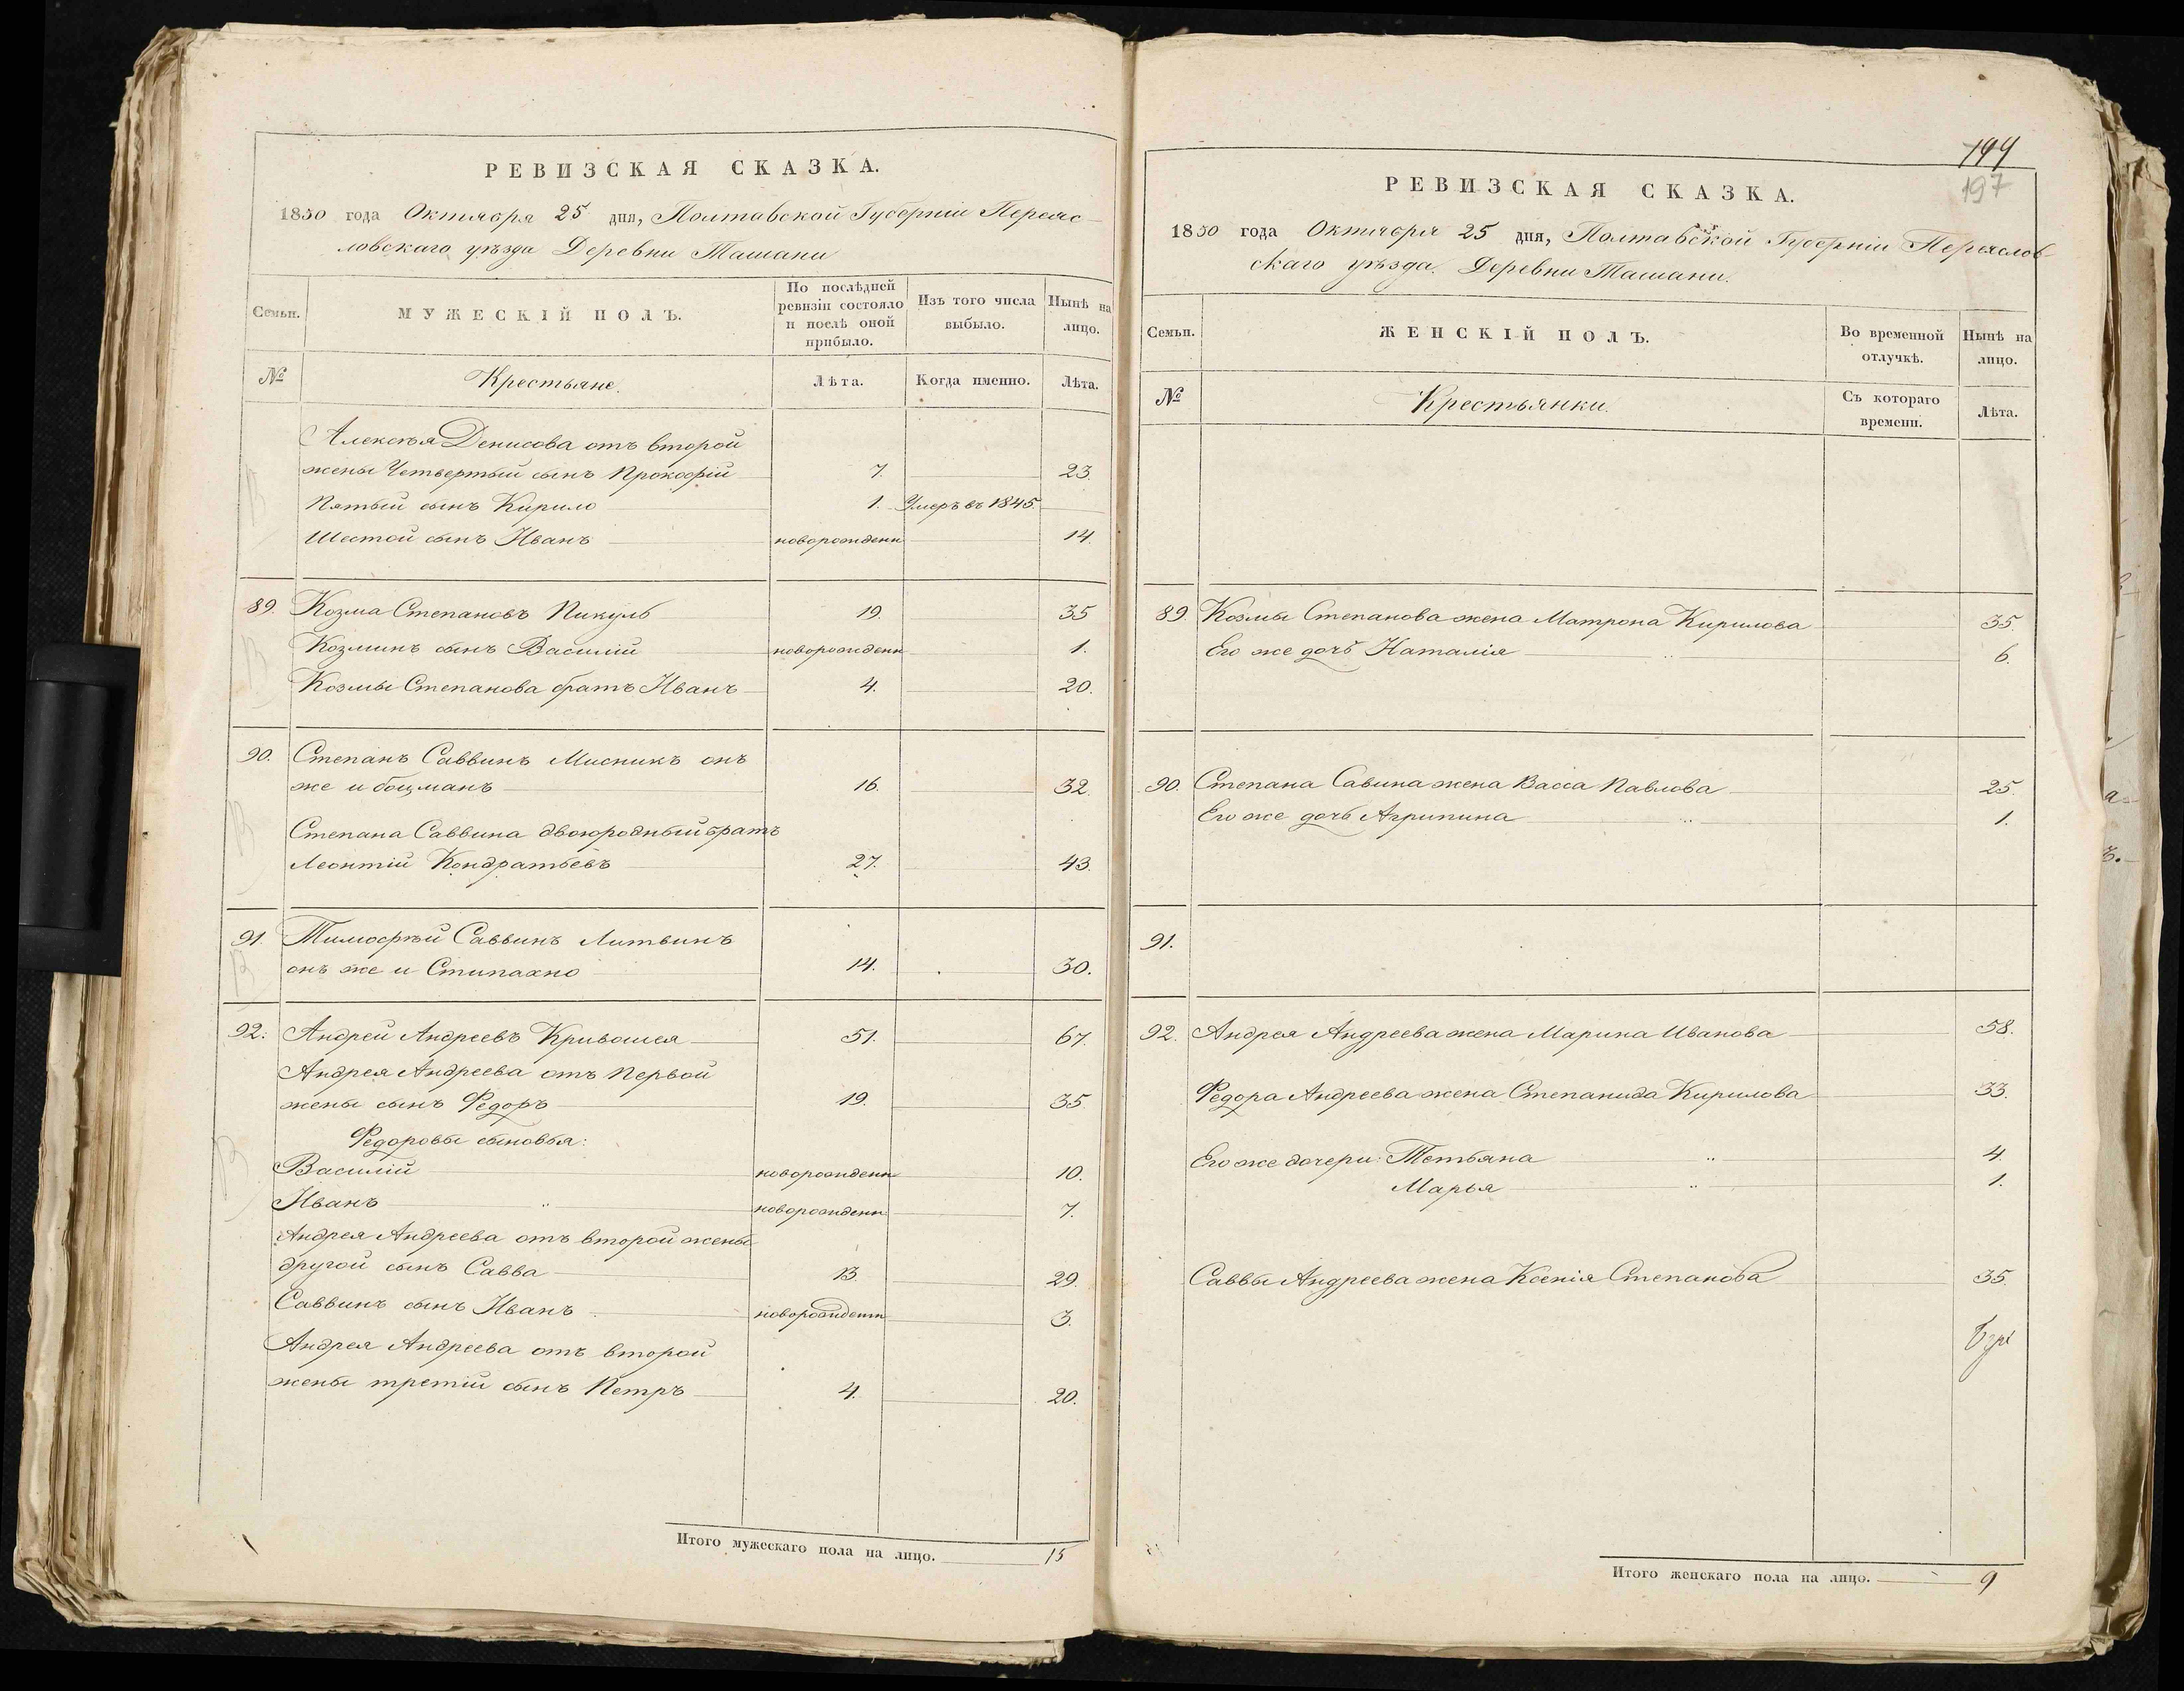 РЕВИЗСКАЯ СКАЗКА.
1850 года Октября 25 дня, Полтавской Губерніи Переяс-
ловскаго уѣзда Деревни Ташани
Семьи. МУЖЕСКІЙ ПОЛЪ. По послѣдней ревизіи состояло и послѣ оной прибыло. Изъ того числа выбыло. Нынѣ на лицо.
№ Крестьяне. Лѣта. Когда именно. Лѣта.
Алексѣя Денисова отъ второй
жены Четвертый сынъ Прокофій 7. 23.
Пятый сынъ Кирило 1. Умеръ въ 1845.
Шестой сынъ Иванъ новорожденн 14.
89. Козма Степановъ Пикуль 19. 35
Козминъ сынъ Василій новорожденн 1.
Козмы Степанова братъ Иванъ 4. 20.
90. Степанъ Саввинъ Мисникъ онъ
же и боцманъ 16. 32.
Степана Саввина двоюродный братъ
Леонтій Кондратьевъ 27. 43.
91. Тимофѣй Саввинъ Литвинъ
онъ же и Стипахно 14. 30.
92. Андрей Андреевъ Кривошея 51. 67.
Андрея Андреева отъ Первой
жены сынъ Федоръ 19. 35
Федоровы сыновья:
Василій новорожденн 10.
Иванъ новорожденн 7.
Андрея Андреева отъ второй жены
другой сынъ Савва 13. 29.
Саввинъ сынъ Иванъ новорожденн 3.
Андрея Андреева отъ второй
жены третій сынъ Петръ 4. 20.
Итого мужескаго пола на лицо. 15
199
197
РЕВИЗСКАЯ СКАЗКА.
1850 года Октября 25 дня, Полтавской Губерніи Переяслов-
скаго уѣзда. Деревни Ташани.
Семьи. ЖЕНСКІЙ ПОЛЪ. Во временной отлучкѣ. Нынѣ на лицо.
№ Крестьянки. Съ котораго времени. Лѣта.
89. Козмы Степанова жена Матрона Кирилова 35.
Его же дочь Наталія 6.
90. Степана Савина жена Васса Павлова 25.
Его же дочь Агрипина 1.
91.
92. Андрея Андреева жена Марина Иванова 58.
Федора Андреева жена Степанида Кирилова 33.
Его же дочери: Тетьяна 4.
Марья 1.
Саввы Андреева жена Ксенія Степанова 35.
Итого женскаго пола на лицо. 9